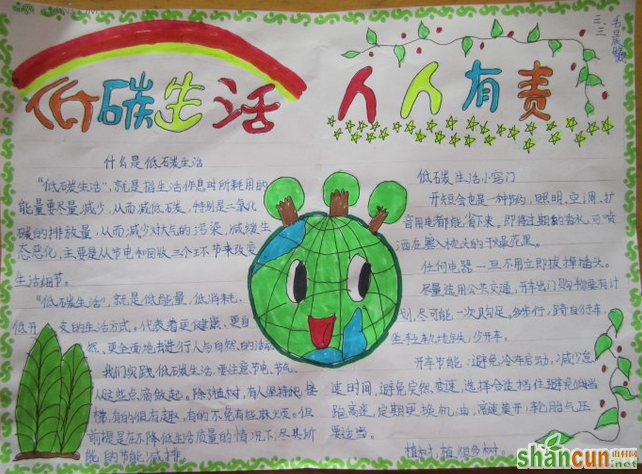 低碳生活 人人有责
三.三
什么是低碳生活
“低碳生活”，就是指生活作息时所耗用的
能量要尽量减少，从而减低碳，特别是二氧化
碳的排放量，从而减少对大气的污染，减缓生
态恶化，主要是从节电和回收三个环节来改变
生活细节。
“低碳生活”，就是低能量，低消耗，
低开支的生活方式，代表着更健康、更自
然、更全面地去进行人与自然的活动
我们实践低碳生活，要注意节电、节气，
从这些点滴做起。除了植树，有人坚持爬楼
梯，有的很有趣，有的不免有些
前提是在不降低生活质量的情况下，尽其所
能的节能减排。
低碳生活小窍门
开短会也是一种节约，照明、空调、扩
音用电都能省下来。即将过期的香水，可喷
洒在
任何电器一旦不用立即拔掉插头。
尽量选用公共交通，开车出门购物要有计
划，尽可能一次购足。多步行，骑自行车，
坐轻轨地铁，少开车。
开车节能：避免冷车启动，减少怠
速时间，避免突然变速，选择合适挡位避免
跑高速，定期更换机油，高速莫开窗，轮胎气压
要适当。
植树
shancun
.net